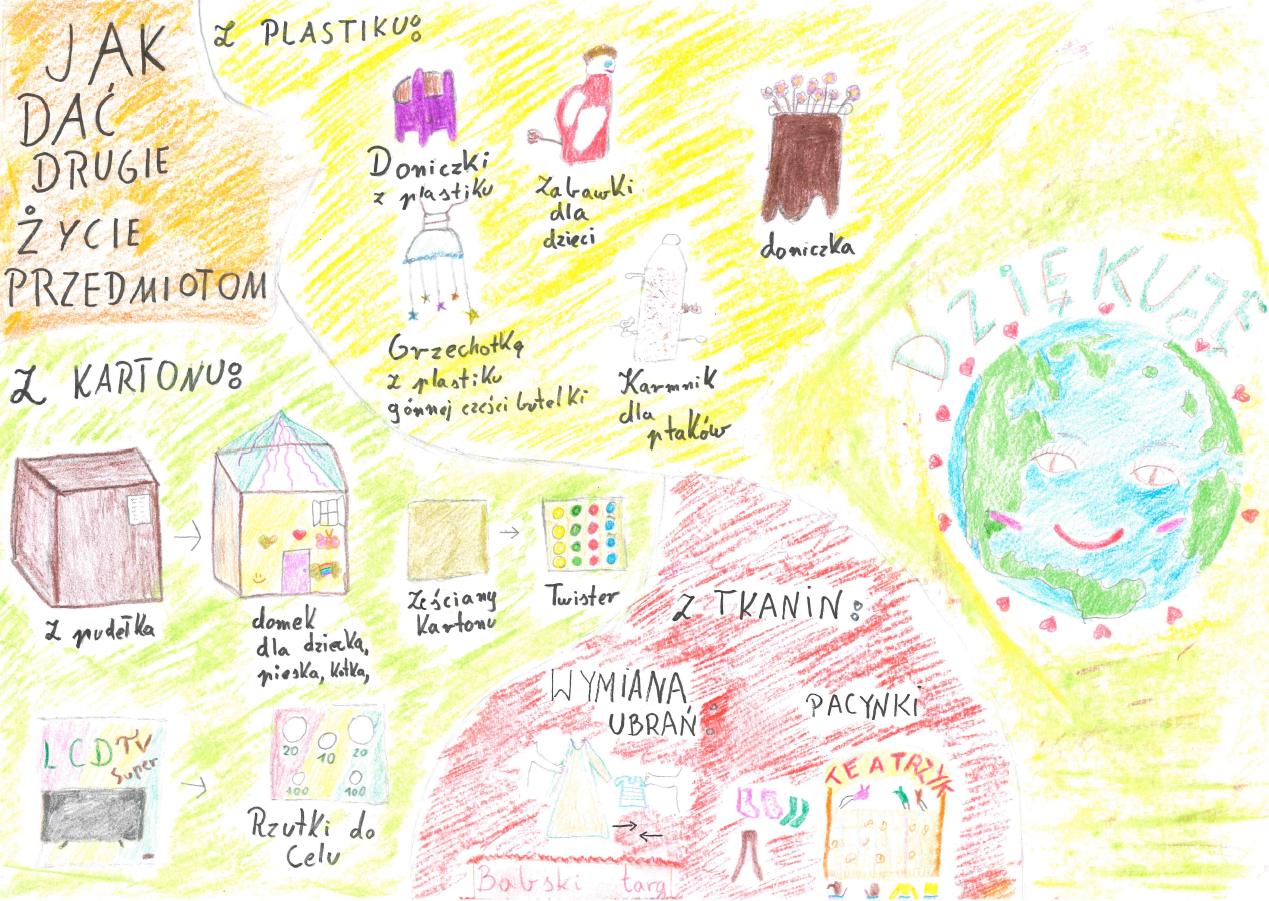 JAK
DAĆ
DRUGIE
ŻYCIE
PRZEDMIOTOM
Z PLASTIKU:
Doniczki
z plastiku
Zabawki
dla
dzieci
doniczka
Grzechotką
z plastiku
gónnej cześci butelki
Karmnik
dla
ptaków
DZIĘKUJĘ
Z KARTONU:
Z pudełka
domek
dla dziecka,
pieska, kotka,
Ześciany
Kartonu
Twister
LCD TV
Super
20 10 20
100 100
Rzutki do
Celu
Z TKANIN:
WYMIANA
UBRAŃ:
Babski targ
PACYNKI
TEATRZYK